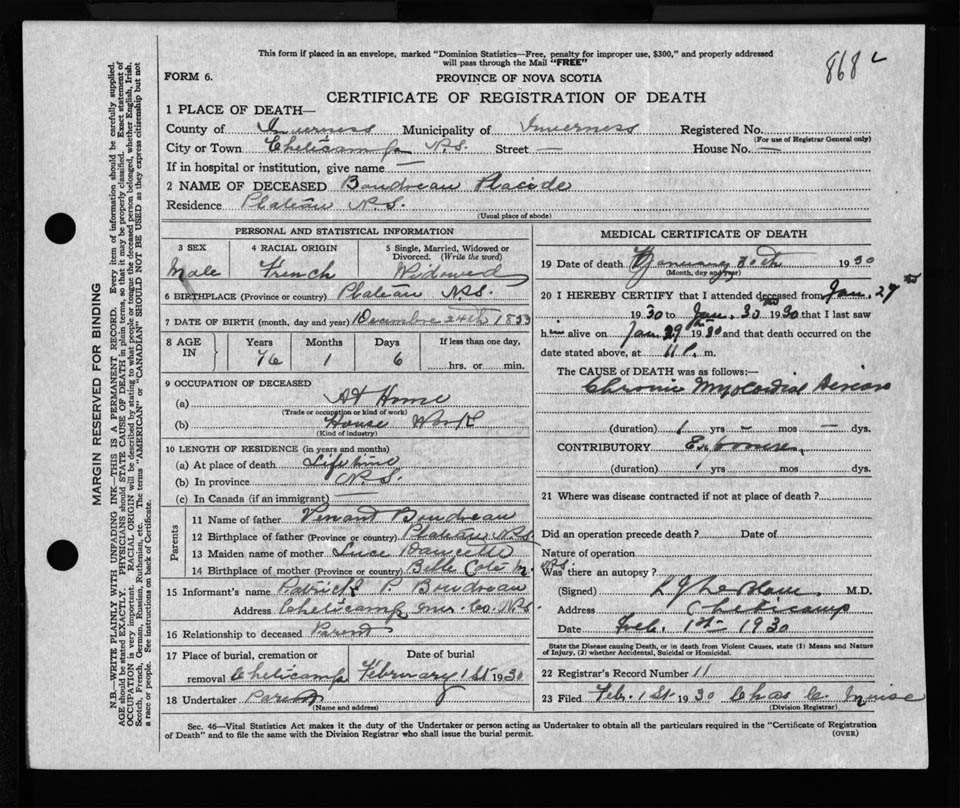 This form if placed in an envelope, marked "Dominion Statistics—Free, penalty for improper use, $300," and properly addressed
will pass through the Mail "FREE"
868
FORM 6.
PROVINCE OF NOVA SCOTIA
CERTIFICATE OF REGISTRATION OF DEATH
1 PLACE OF DEATH—
County of Inverness Municipality of Inverness Registered No.
(For use of Registrar General only)
City or Town Cheticamp N.S. Street — House No. —
If in hospital or institution, give name —
2 NAME OF DECEASED Boudreau Placide
Residence Plateau N.S.
(Usual place of abode)
PERSONAL AND STATISTICAL INFORMATION
3 SEX 4 RACIAL ORIGIN 5 Single, Married, Widowed or
Divorced. (Write the word)
Male French Widowed
6 BIRTHPLACE (Province or country) Plateau N.S.
7 DATE OF BIRTH (month, day and year) Decembre 24th 1853
8 AGE IN Years Months Days If less than one day,
76 1 6 hrs. or min.
9 OCCUPATION OF DECEASED
(a) At Home
(Trade or occupation or kind of work)
(b) House Work
(Kind of industry)
10 LENGTH OF RESIDENCE (in years and months)
(a) At place of death Lifetime
(b) In province N.S.
(c) In Canada (if an immigrant) —
Parents
11 Name of father Boudreau
12 Birthplace of father (Province or country) Plateau N.S.
13 Maiden name of mother Luce
14 Birthplace of mother (Province or country) Belle Cote N.S.
15 Informant's name Patrick P. Boudreau
Address Cheticamp Inv. Co. N.S.
16 Relationship to deceased Parent
17 Place of burial, cremation or Date of burial
removal Cheticamp February 1st 1930
18 Undertaker Parent
(Name and address)
MEDICAL CERTIFICATE OF DEATH
19 Date of death January 30th 1930
(Month, day and year)
20 I HEREBY CERTIFY that I attended deceased from Jan. 27th
1930 to Jan. 30th 1930 that I last saw
him alive on Jan 29th 1930 and that death occurred on the
date stated above, at 11 P. m.
The CAUSE of DEATH was as follows:—
Chronic Myocardial
(duration) 1 yrs – mos — dys.
CONTRIBUTORY
(duration) 1 yrs mos dys.
21 Where was disease contracted if not at place of death?
Did an operation precede death? Date of
Nature of operation
Was there an autopsy?
(Signed) M.D.
Address Cheticamp
Date Feb. 1st – 1930
State the Disease causing Death, or in death from Violent Causes, state (1) Means and Nature
of Injury, (2) whether Accidental, Suicidal or Homicidal.
22 Registrar's Record Number 11
23 Filed Feb. 1st 1930 Chas C.
(Division Registrar)
Sec. 46—Vital Statistics Act makes it the duty of the Undertaker or person acting as Undertaker to obtain all the particulars required in the "Certificate of Registration
of Death" and to file the same with the Division Registrar who shall issue the burial permit. (OVER)
MARGIN RESERVED FOR BINDING
N.B.—WRITE PLAINLY WITH UNFADING INK—THIS IS A PERMANENT RECORD. Every item of information should be carefully supplied.
AGE should be stated EXACTLY. PHYSICIANS should STATE CAUSE OF DEATH in plain terms, so that it may be properly classified. Exact statement of
OCCUPATION is very important. RACIAL ORIGIN will be described by stating to what people or tongue the deceased person belonged, whether English, Irish,
Scotch, French, German, Russian, Ruthenian, etc. The terms "AMERICAN" or "CANADIAN" SHOULD NOT BE USED as they express citizenship but not
a race or people. See instructions on back of Certificate.